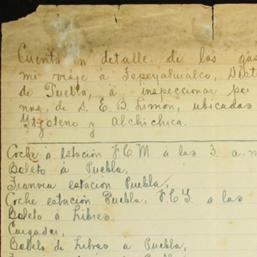 Cuenta en detalle de los gas
mi viaje á Tepeyahualco, Dist
de Puebla, á inspeccionar pei
nra. de S. E. B. Limon, ubicadas
Itzoteno y Alchichica.
Coche á estación F.C.M á las 3. a.m
Boleto á Puebla,
Tranvia estacion Puebla,
Coche estación Puebla. F.C.I. a las
Boleto á Libres.
Cargador,
Boleto de Libres a Puebla,